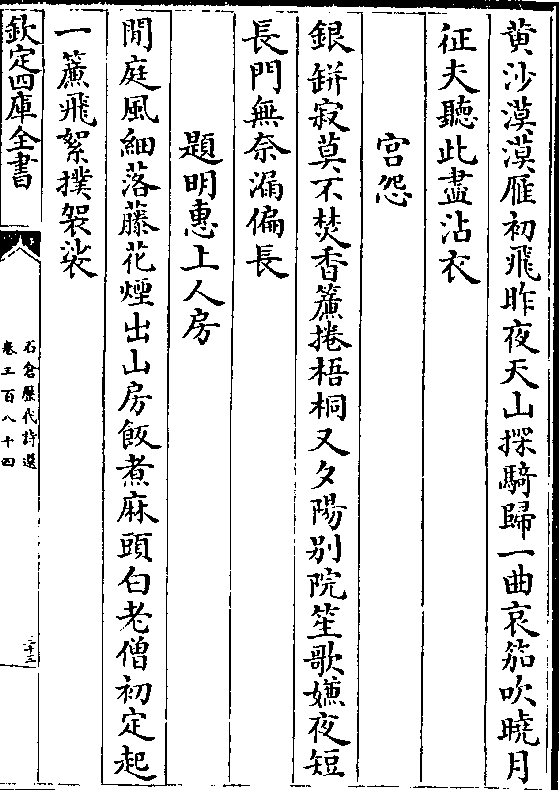 黄沙漠漠雁初飛昨夜天山探騎歸一曲哀笳吹曉月
征夫聽此盡沾衣
宫怨
銀缾寂莫不焚香簾捲梧桐又夕陽别院笙歌嫌夜短
長門無奈漏偏長
題明惠上人房
閒庭風細落藤花煙出山房飯煮麻頭白老僧初定起
一簾飛絮撲袈裟
欽定四庫全書
石倉歴代詩選
卷三百八十四
三十三